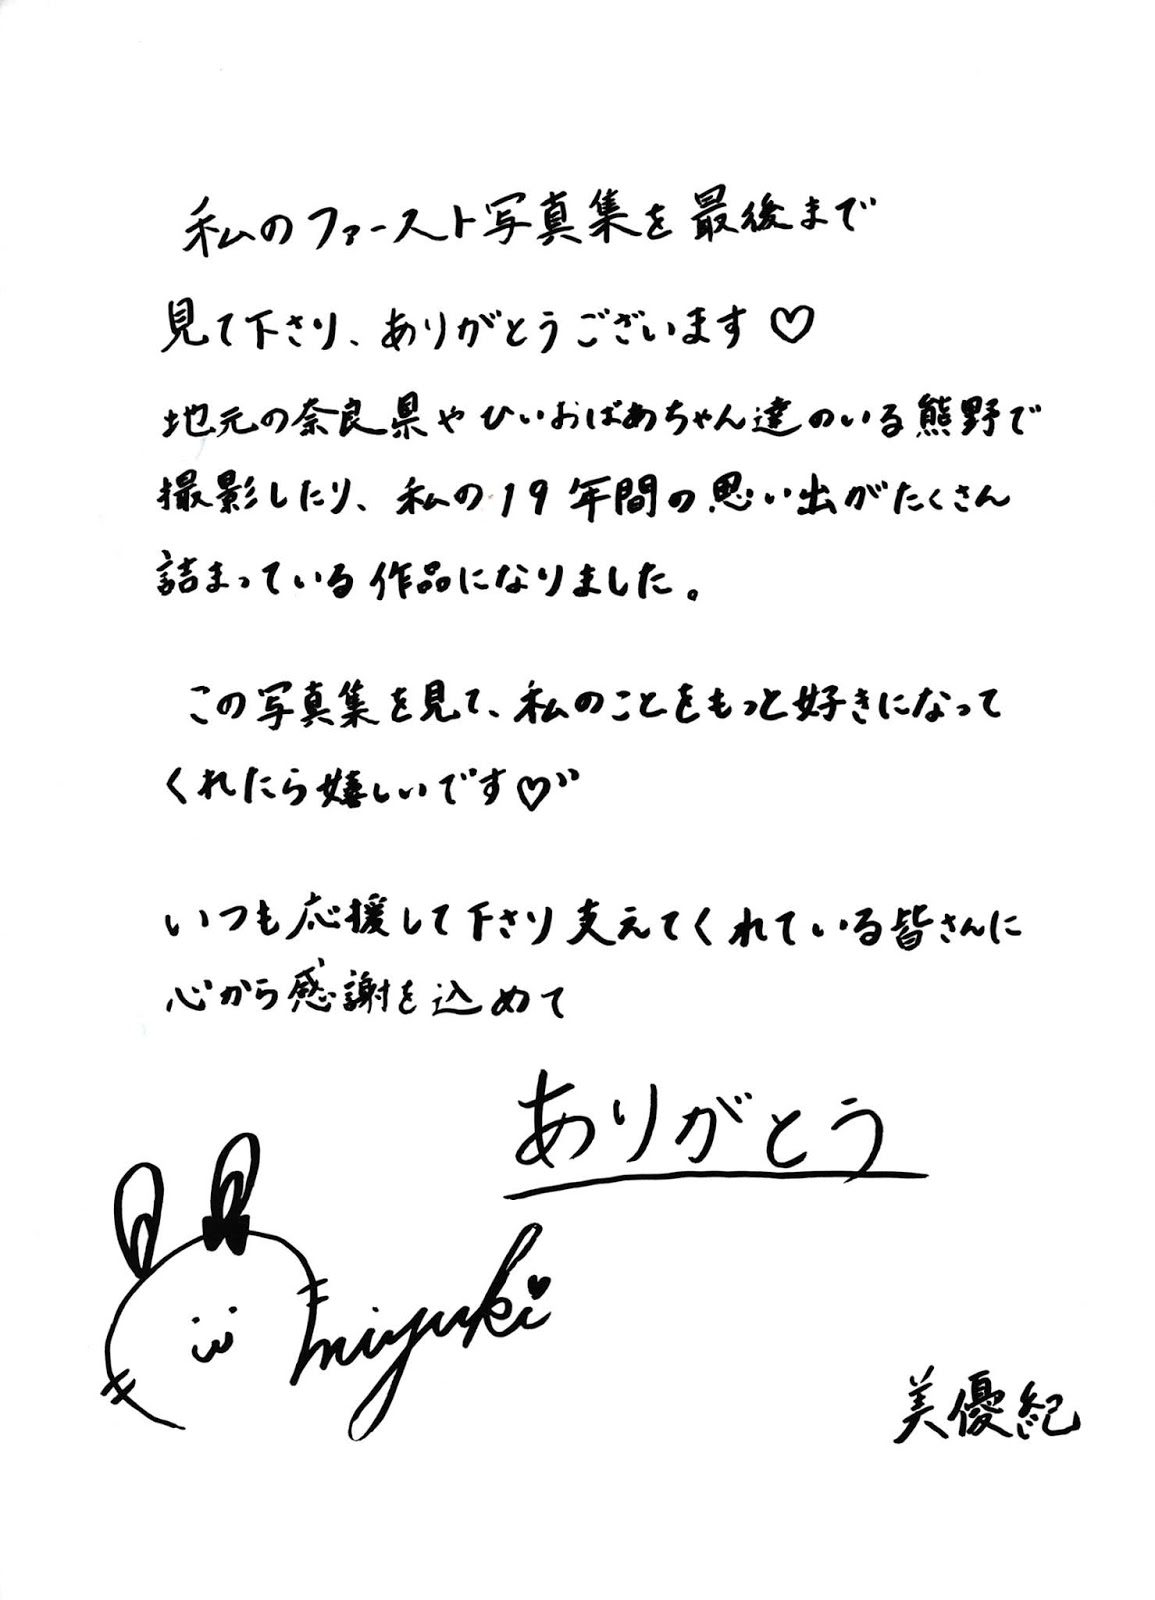 私のファースト写真集を最後まで
見て下さり、ありがとうございます♡
地元の奈良県やひいおばあちゃん達のいる熊野で
撮影したり、私の19年間の思い出がたくさん
詰まっている作品になりました。
この写真集を見て、私のことをもっと好きになって
くれたら嬉しいです♡”
いつも応援して下さり支えてくれている皆さんに
心から感謝を込めて
ありがとう
miyuki
美優紀